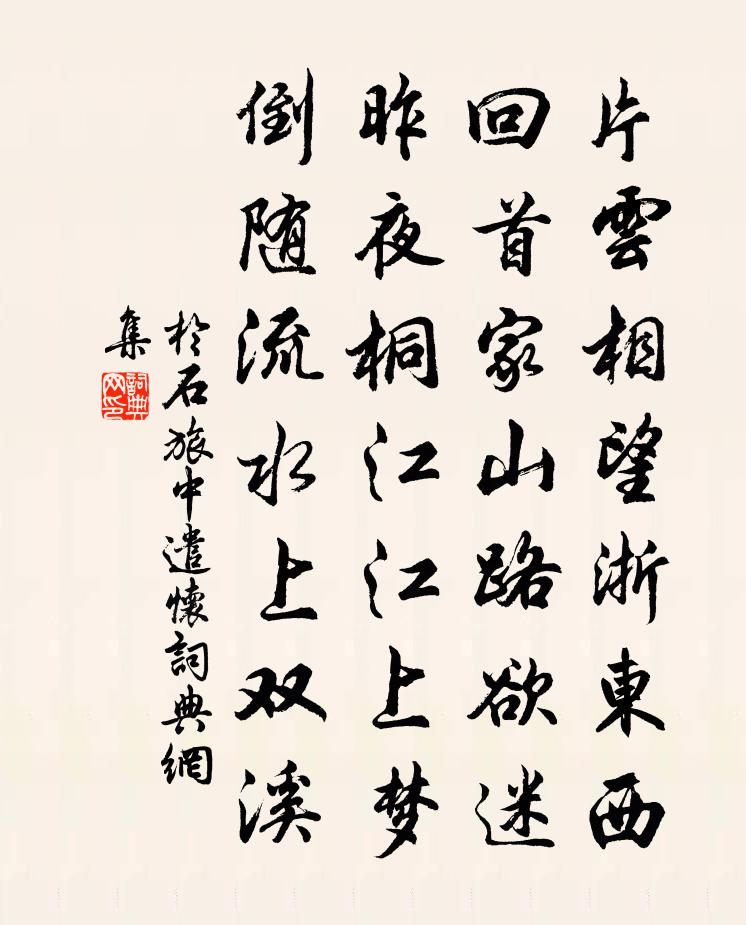 片雲相望浙東西
回首家山路欲迷
昨夜桐江江上梦
倒随流水上双溪
於石旅中遣懷詞典網
集
詞典
网印